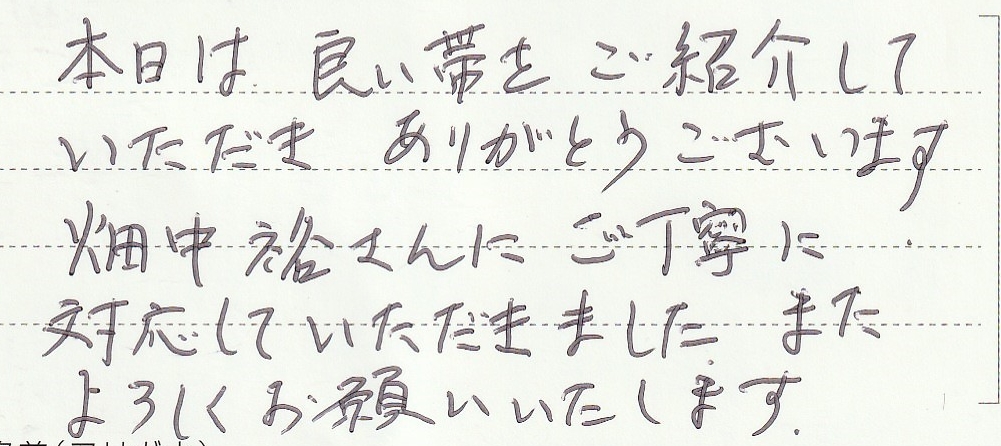 本日は 良い帯を ご紹介して
いただき ありがとうございます
畑中裕さんに ご丁寧に
対応していただきました また
よろしくお願いいたします.